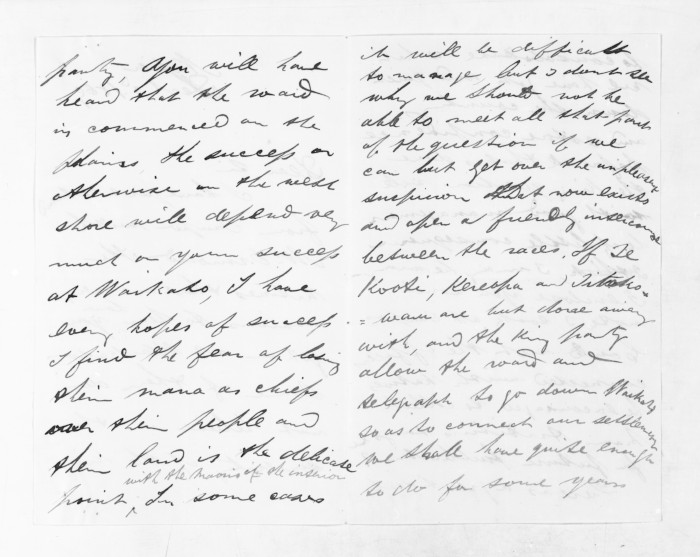 party, You will have
heard that the road
is commenced on the
the success or
otherwise on the west
shore will depend very
much on your success
at Waikato, I have
every hopes of success
I find the fear of losing
their mana as chiefs
over their people and
their land is the delicate
with the Maoris of the interior
point, In some cases
it will be difficult
to manage, but I dont see
why we should not be
able to meet all that part
of the question if we
can but get over the unpleasant
suspicion that now exists
and open a friendly intercourse
between the races, If Te
Kooti, Kereopa and Titoko=
=waru are but done away
with, and the King party
allow the road and
telegraph to go down Waikato
so as to connect our settlements
we shall have quite enough
to do for some years